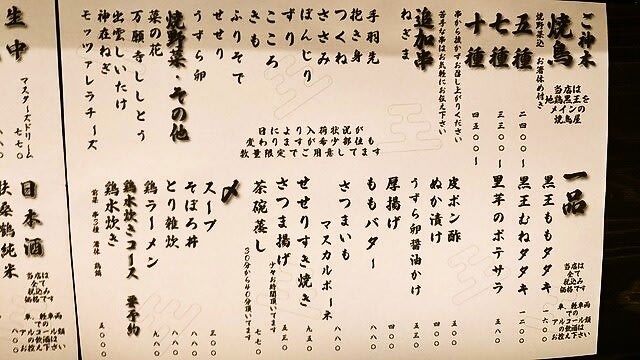 ご神木
当店は
地鶏黒王を
メインの
焼鳥屋
焼鳥
焼野菜込 お箸休め付き
五種 二四〇〇〜
七種 三三〇〇〜
十種 四五〇〇〜
串から抜かずお召し上がりください
苦手な串はお気軽にお伝え下さい
追加串
ねぎま
手羽先
抱き身
つくね
ささみ
ぼんじり
ずり
こころ
きも
ふりそで
せせり
うずら卵
焼野菜・その他
菜の花
万願寺ししとう
出雲しいたけ
神在ねぎ
モッツァレラチーズ
日により入荷状況が
変わりますが希少部位も
数量限定でご用意してます
一品
当店は
全て
税込み
価格です
車、軽車両
での
アルコール類
の飲酒は
お控え下さい
黒王ももタタキ
黒王むねタタキ
里芋のポテサラ 五八〇
皮ポン酢 五〇〇
ぬか漬け 四〇〇
うずら卵醤油かけ
厚揚げ
ももバター 八八〇
さつまいも
マスカルポーネ
せせりすき焼き 九五〇
さつま揚げ 五五〇
少々お時間頂いてます
茶碗蒸し 七七〇
30分から40分頂いてます
〆
スープ 三〇〇
そぼろ丼
とり雑炊 八八〇
鶏ラーメン 九八〇
鶏水炊きコース 要予約
鶏水炊き 五五〇〇
生中
マスターズドリーム
七七〇
日本酒
扶桑鶴純米
当店は
全て
税込み
価格です
車、軽車両
での
アルコール類
の飲酒は
お控え下さい